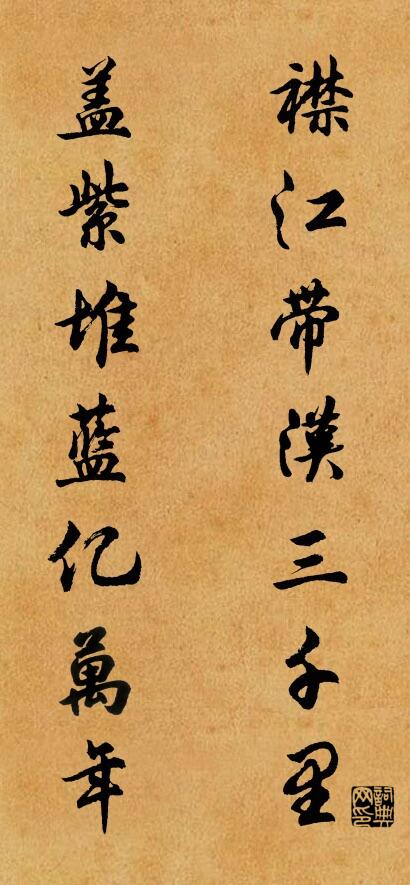 襟江带漢三千里
盖紫堆藍亿萬年
詞典网印